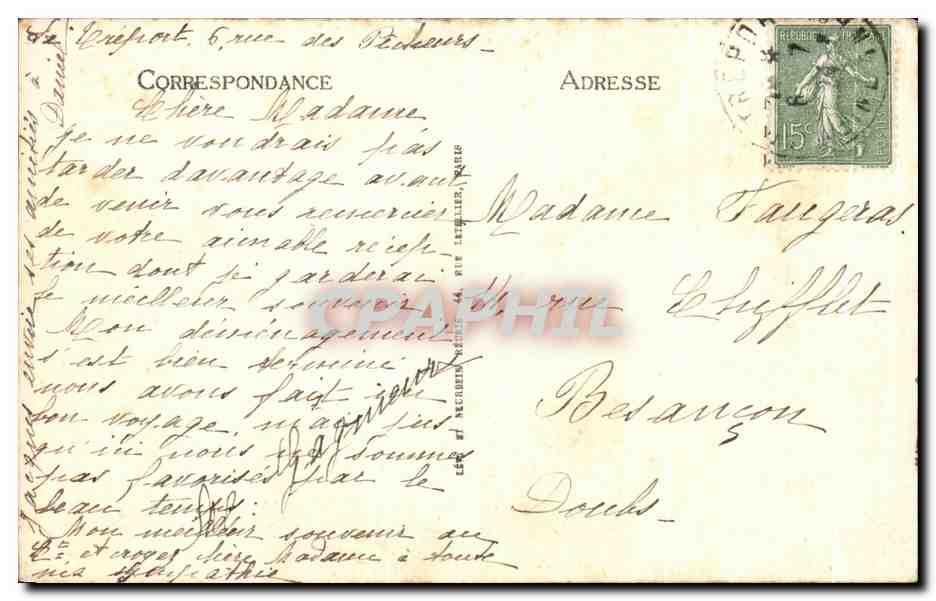 Le Tréport. 6, rue des Pêcheurs_
CORRESPONDANCE
Chère Madame
je ne voudrais pas
tarder davantage avant
de venir vous remercier
de votre aimable récep-
tion dont je garderai
le meilleur souvenir
Mon déménagement
s'est bien terminé
nous avons fait un
bon voyage, mais jus
qu'ici nous ne sommes
pas favorisés par le
beau temps.
Mon meilleur souvenir au
et croyez chère Madame à toute
ma sympathie
Jacques envoie ses amitiés à
Daniel
LÉVY ET NEURDEIN RÉUNIS, 44, RUE LETELLIER, PARIS
ADRESSE
RÉPUBLIQUE FRANÇAISE
15c
Madame Faugeras
11, rue Chifflet
Besançon
Doubs_
CPAPHIL